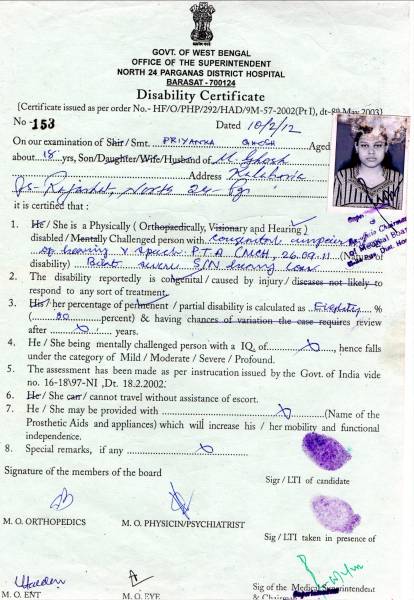 GOVT. OF WEST BENGAL
OFFICE OF THE SUPERINTENDENT
NORTH 24 PARGANAS DISTRICT HOSPITAL
BARASAT - 700124
Disability Certificate
[Certificate issued as per order No.- HF/O/PHP/292/HAD/9M-57-2002(Pt I), dt-8th May 2003]
No - 153 Dated 10/2/12
On our examination of Shri/Smt. PRIYANKA GHOSH Aged
about 18 yrs, Son/Daughter/Wife/Husband of M. Ghosh
Address
PS- Rajarhat, North 24-
it is certified that :
1. He / She is a Physically ( Orthopaedically, Visionary and Hearing )
disabled / Mentally Challenged person with congenital
of hearing & speech P.T.A (MCH, 26.09.11
disability) Bilat severe S/N hearing loss
2. The disability reportedly is congenital / caused by injury / diseases not likely to
respond to any sort of treatment.
3. His / her percentage of permanent / partial disability is calculated as Eighty %
( 80 percent) & having chances of variation the case requires review
after years.
4. He / She being mentally challenged person with a IQ, of , hence falls
under the category of Mild / Moderate / Severe / Profound.
5. The assessment has been made as per instrucation issued by the Govt. of India vide
no. 16-18\97-NI ,Dt. 18.2.2002.
6. He / She can / cannot travel without assistance of escort.
7. He / She may be provided with (Name of the
Prosthetic Aids and appliances) which will increase his / her mobility and functional
independence.
8. Special remarks, if any
Signature of the members of the board
Sigr / LTI of candidate
M. O. ORTHOPEDICS M. O. PHYSICIN/PSYCHIATRIST
Sig / LTI taken in presence of
M. O. ENT M. O. EYE Sig of the Medical Superintendent
& Chairman